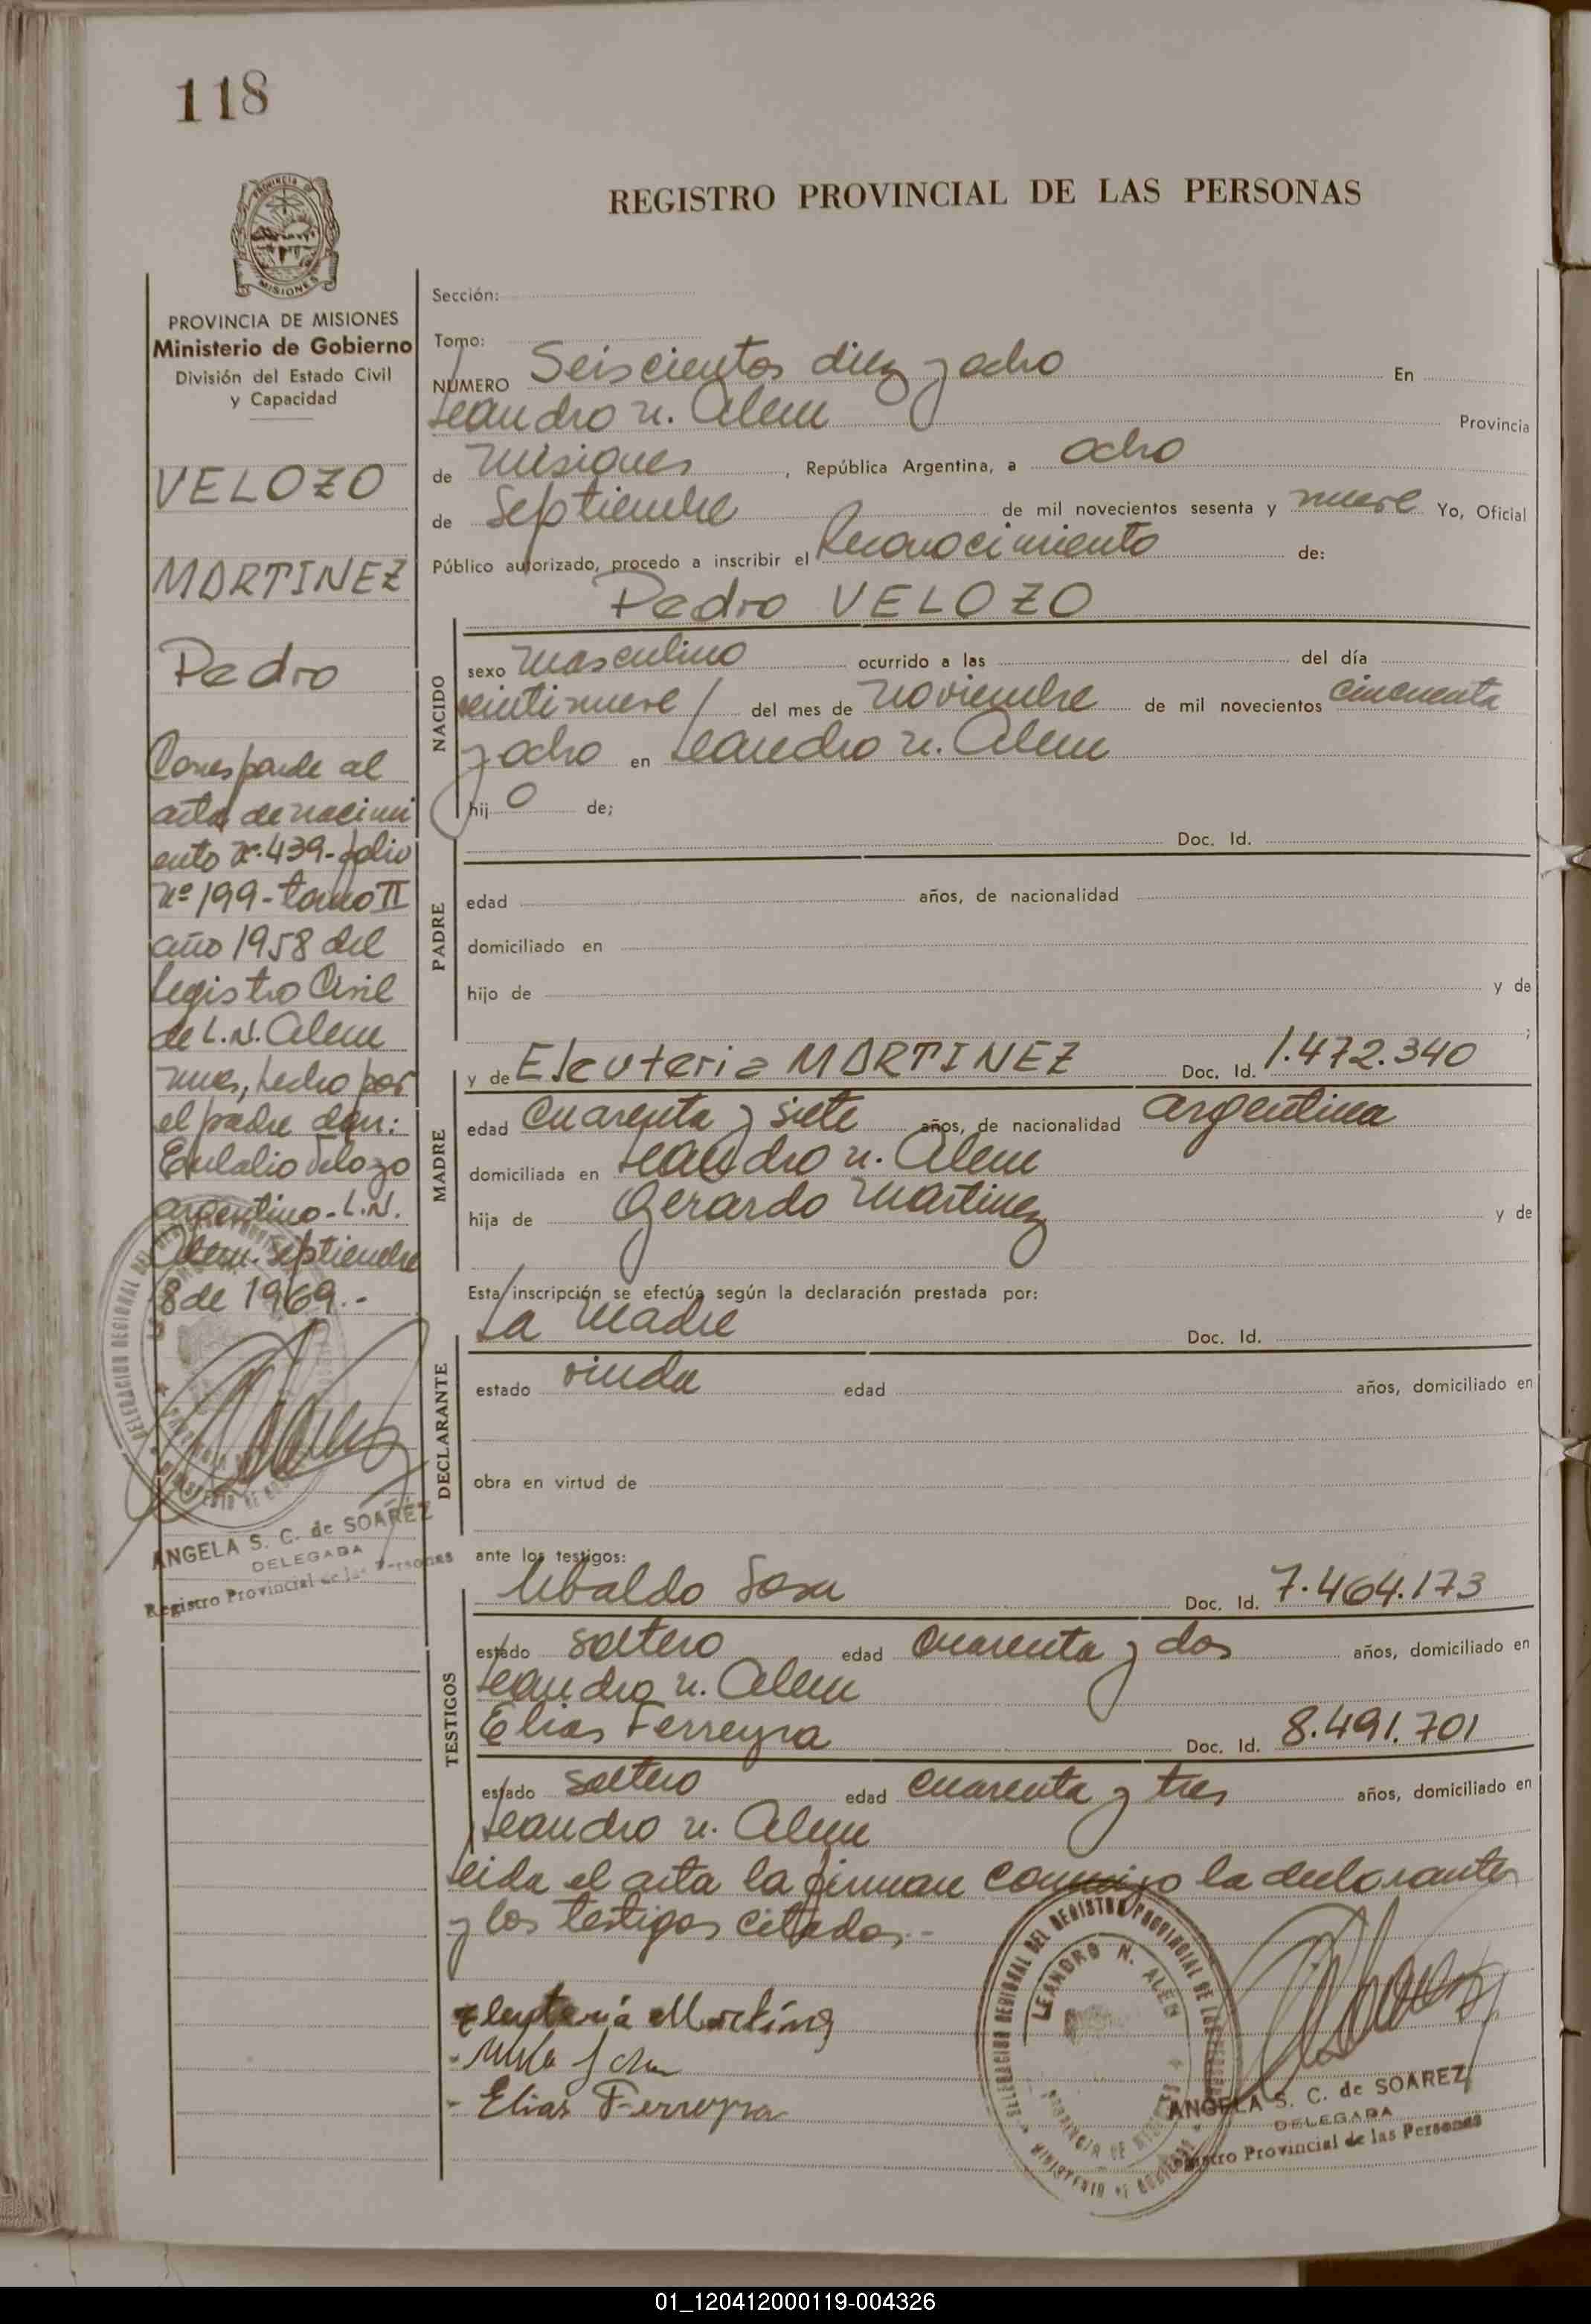 118
PROVINCIA
MISIONES
PROVINCIA DE MISIONES
Ministerio de Gobierno
División del Estado Civil
y Capacidad
VELOZO
MARTINEZ
Pedro
Corresponde al
acta de nacimi
ento Nº 439-folio
Nº 199-tomo II
año 1958 del
Registro Civil
de L.N. Alem
mnes, hecho por
el padre don:
Eulalio Velozo
argentino-L.N.
Alem. septiembre
8 de 1969.-
ANGELA S. C. de SOAREZ
DELEGADA
Registro Provincial de las Personas
REGISTRO PROVINCIAL DE LAS PERSONAS
Sección:
Tomo:
NUMERO Seiscientos diez y ocho En
Leandro N. Alem Provincia
de Misiones, República Argentina, a ocho
de Septiembre de mil novecientos sesenta y nueve Yo, Oficial
Público autorizado, procedo a inscribir el Reconocimiento de:
Pedro VELOZO
NACIDO
sexo masculino ocurrido a las del día
veintinueve/ del mes de Noviembre de mil novecientos cincuenta
y ocho en Leandro N. Alem
hij o de;
PADRE
Doc. Id.
edad años, de nacionalidad
domiciliado en
hijo de y de
;
MADRE
y de Eleuteria MARTINEZ Doc. Id. 1.472.340
edad cuarenta y siete años, de nacionalidad argentina
domiciliada en Leandro N. Alem
hija de Gerardo Martinez y de
Esta inscripción se efectúa según la declaración prestada por:
DECLARANTE
La Madre Doc. Id.
estado viuda edad años, domiciliado en
obra en virtud de
ante los testigos:
TESTIGOS
Ubaldo Sosa Doc. Id. 7.464.173
estado soltero edad cuarenta y dos años, domiciliado en
Leandro N. Alem
Elias Ferreyra Doc. Id. 8.491.701
estado soltero edad cuarenta y tres años, domiciliado en
Leandro N. Alem
Leida el acta la firman conmigo la declarante
y los testigos citados.-
Eleuteria Martinez
- Elias Ferreyra
DELEGACION REGIONAL DEL REGISTRO PROVINCIAL DE LAS PERSONAS
LEANDRO N. ALEM
PROVINCIA DE MISIONES
MINISTERIO DE GOBIERNO
ANGELA S. C. de SOAREZ
DELEGADA
Registro Provincial de las Personas
01_120412000119-004326